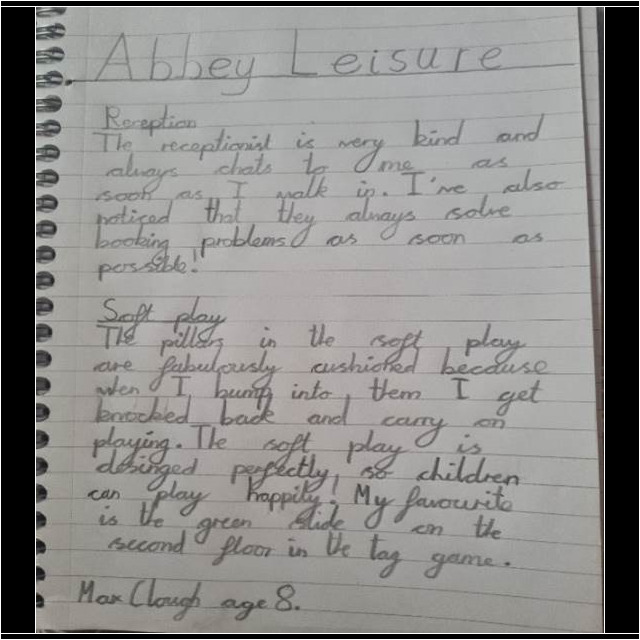 Abbey Leisure
Reception
The receptionist is very kind and
always chats to me as
soon as I walk in. I've also
noticed that they always solve
booking problems as soon as
perssible!
Soft play
The pillers in the soft play
are fabulously cushioned because
when I bump into them I get
knocked back and carry on
playing. The soft play is
desinged perfectly, so children
can play happily! My favourite
is the green slide on the
second floor in the tag game.
Max Clough age 8.